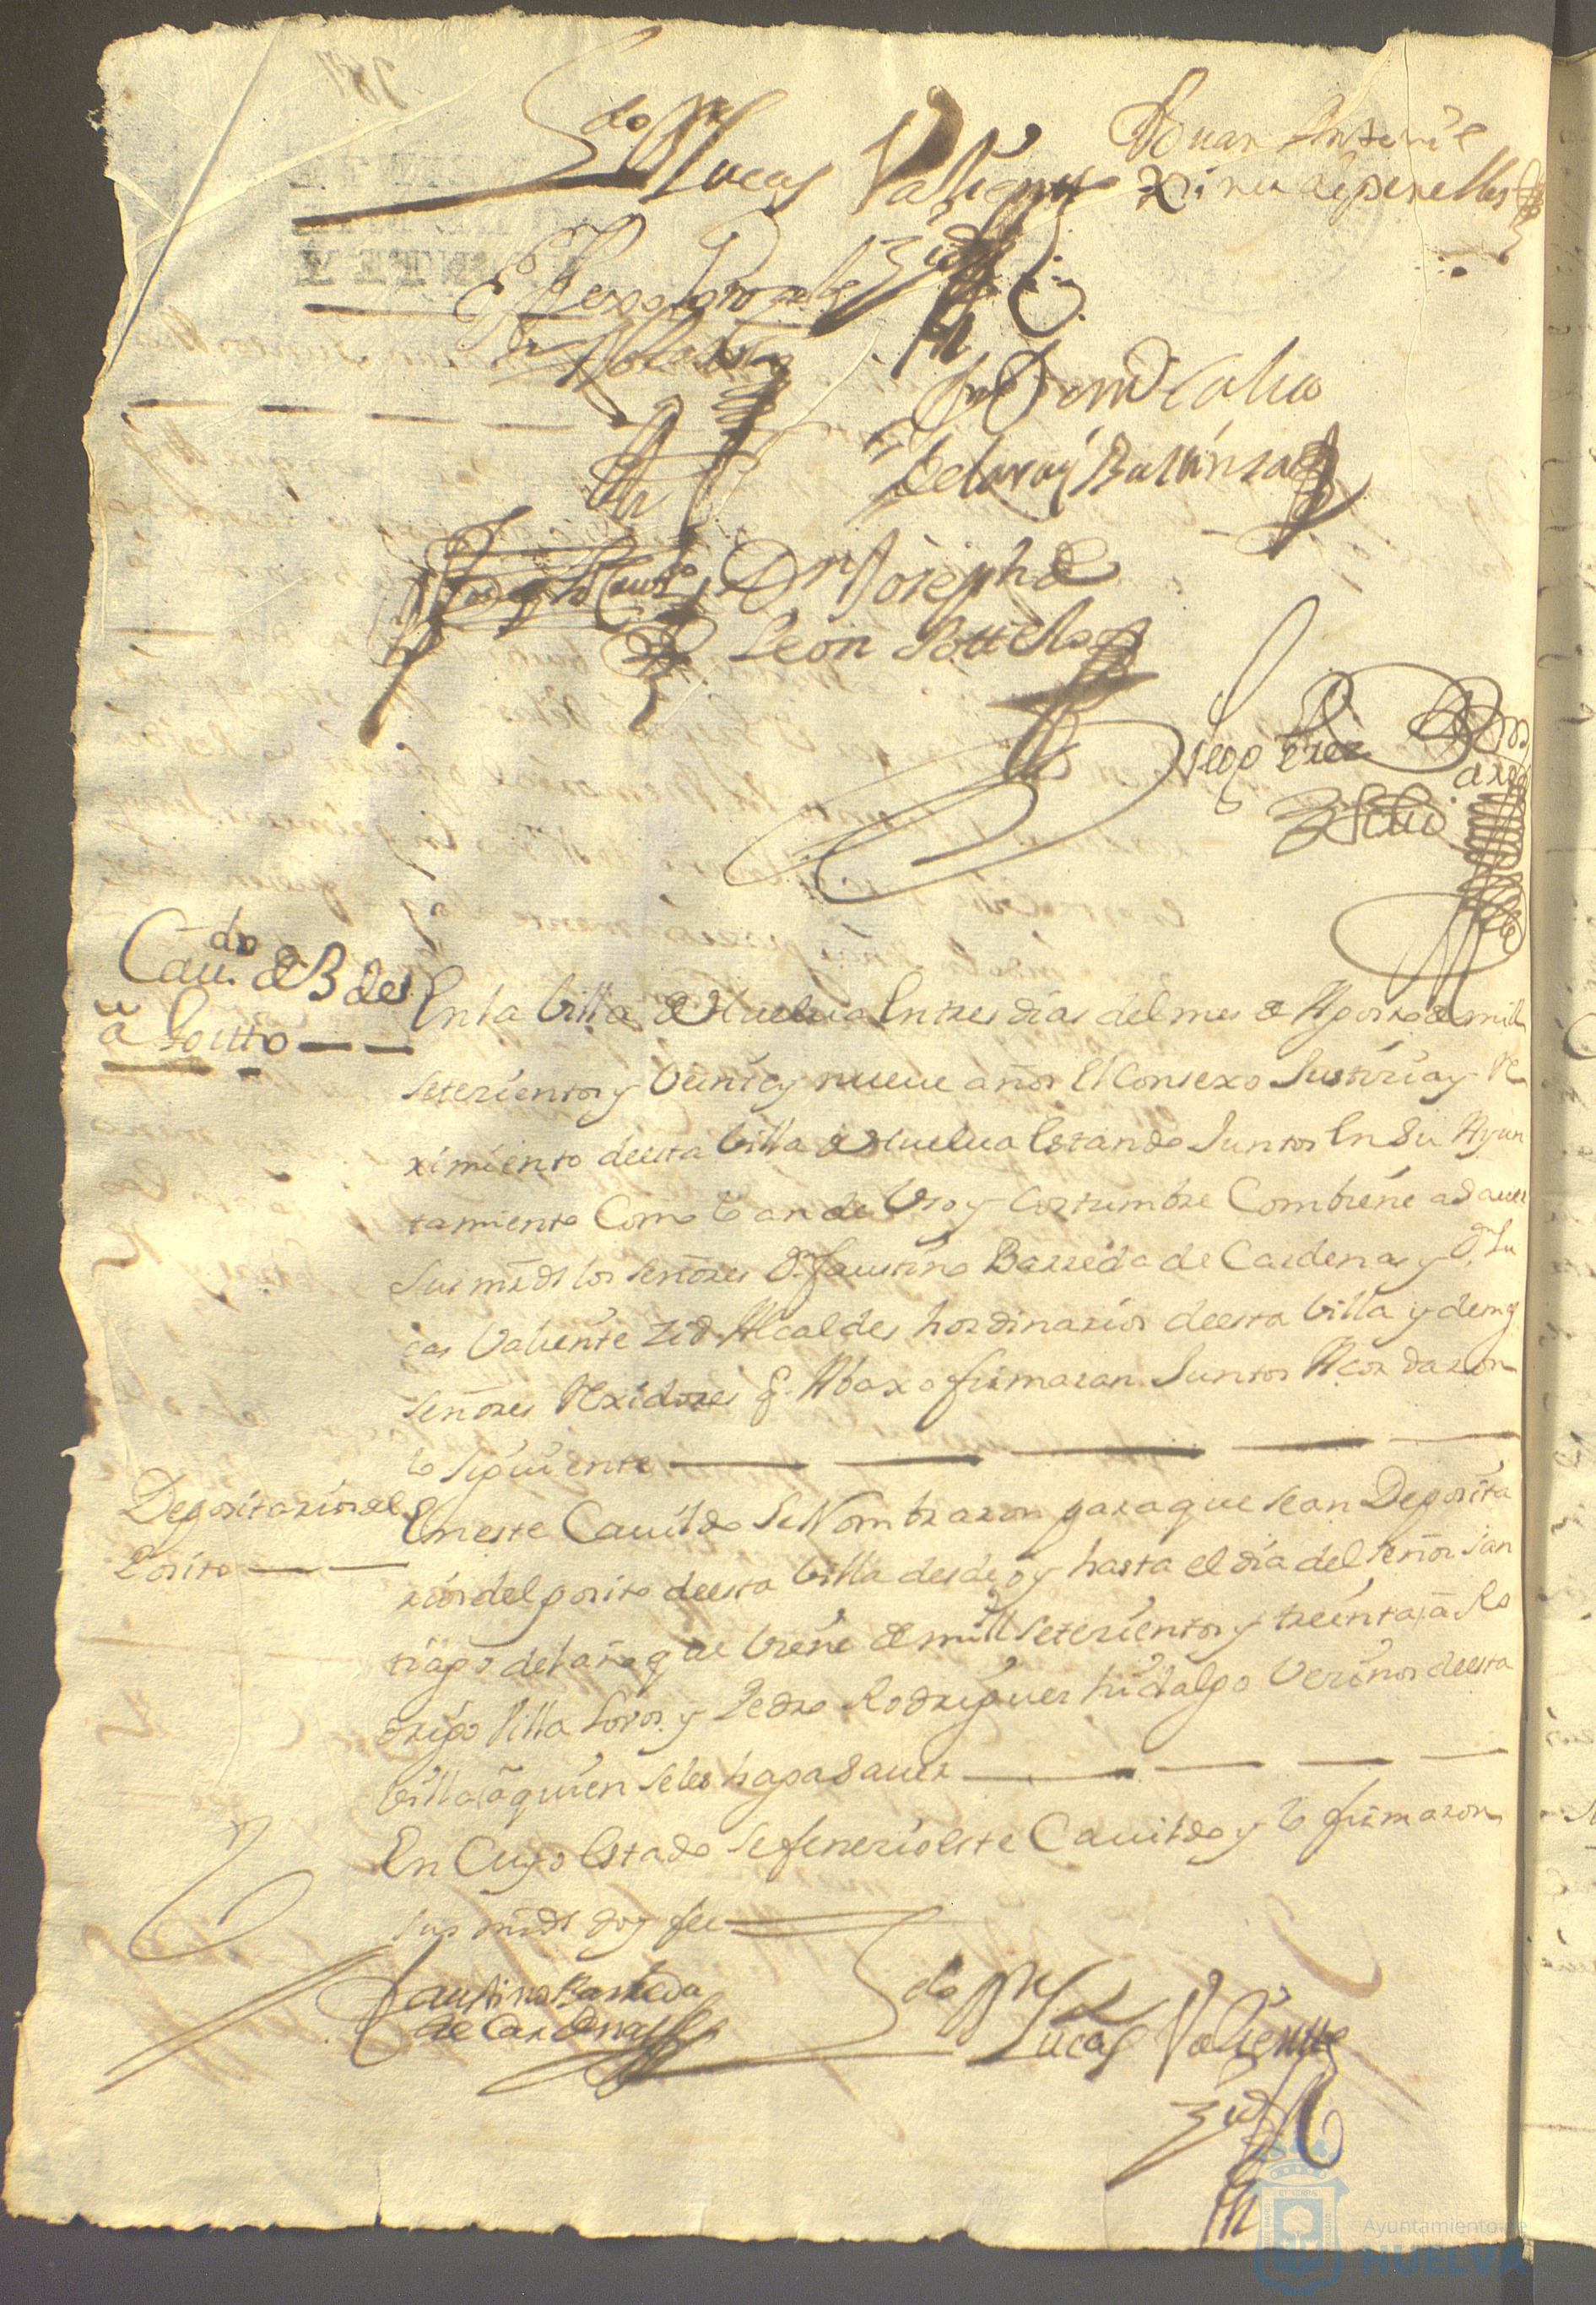 Ldo Dn Lucas Valiente
Zid
Juan Antonio
Ximenez de penelles
Dn Joseph de
Leon Sotelo
Diego Perez
Caudo de 3 de
Agostto
En la Villa de Huelua En tres dias del mes de Agosto de mill
setecientos y Veinte y nueue años El Consexo Justicia y Re
ximiento deesta Villa de Huelua Estando Juntos En Su Ayun
tamiento Como lo an de Vso y Costumbre Combiene a Sauer
Sus mrds los señores Dn faustino Barreda de Cardenas y Dn Lu
cas Valiente Zid Alcaldes hordinarios deesta Villa y demas
señores Rexidores q. Abaxo firmaran Juntos Acordaron
lo siguiente
Depositarios del
Posito
En este Cauildo Se Nombraron para que sean Deposita
rios del posito deesta Villa desde oy hasta el dia del señor San
tiago del año que biene de mill setecientos y treinta, a Ro
drigo Villa Lovos y Pedro Rodriguez hidalgo Vecinos deesta
Villa a quien se les haga Sauer
En Cuyo Estado Se fenecio este Cauildo y lo firmaron
sus mrds doy fee
Faustino Barreda
de Cardenas
Ldo Dn Lucas Valiente
Zid
Ayuntamiento de
HUELVA